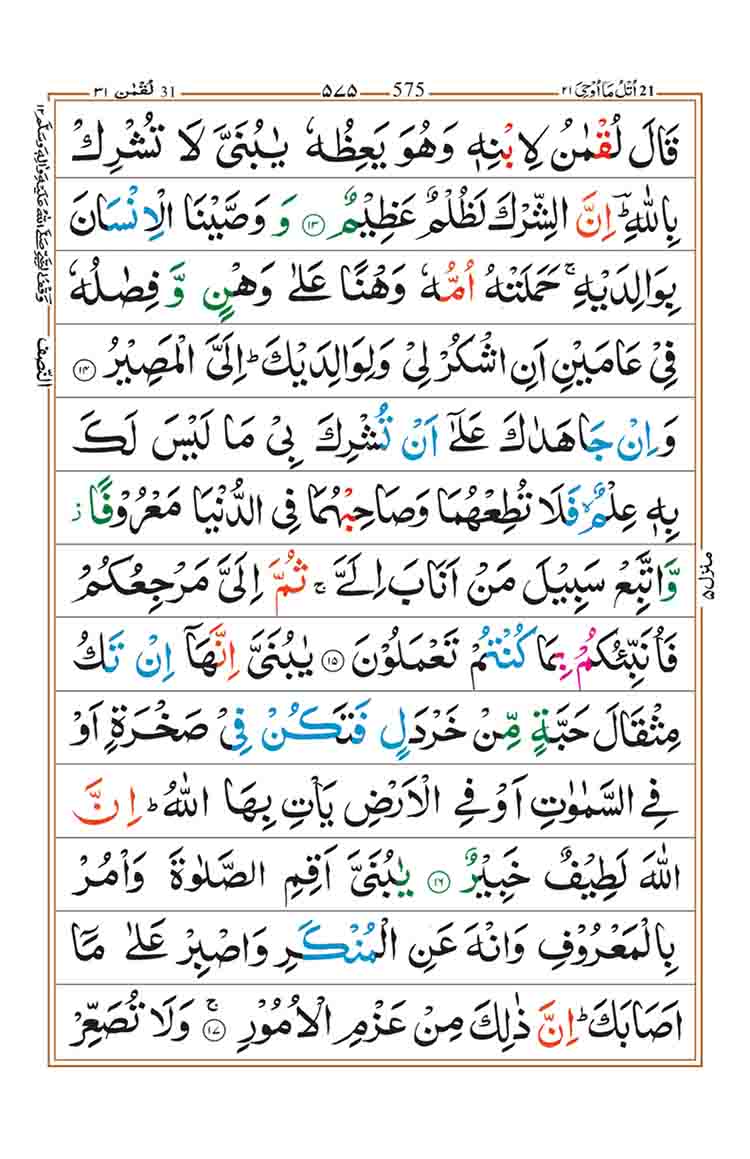 اُتْلُ مَاۤ اُوْحِیَ ٢١ 21
575 ۵۷۵
31 لُقْمٰن ٣١
قَالَ لُقْمٰنُ لِابْنِهٖ وَهُوَ يَعِظُهٗ يٰبُنَیَّ لَا تُشْرِكْ
بِاللّٰهِ ؕ اِنَّ الشِّرْكَ لَظُلْمٌ عَظِيْمٌ ۝۱۳ وَ وَصَّيْنَا الْاِنْسَانَ
بِوَالِدَيْهِ ۚ حَمَلَتْهُ اُمُّهٗ وَهْنًا عَلٰى وَهْنٍ وَّ فِصٰلُهٗ
فِیْ عَامَيْنِ اَنِ اشْكُرْ لِیْ وَلِوَالِدَيْكَ ؕ اِلَیَّ الْمَصِيْرُ ۝۱۴
وَاِنْ جَاهَدٰكَ عَلٰۤى اَنْ تُشْرِكَ بِیْ مَا لَيْسَ لَكَ
بِهٖ عِلْمٌ ۙ فَلَا تُطِعْهُمَا وَصَاحِبْهُمَا فِی الدُّنْيَا مَعْرُوْفًا ز
وَّاتَّبِعْ سَبِيْلَ مَنْ اَنَابَ اِلَیَّ ۚ ثُمَّ اِلَیَّ مَرْجِعُكُمْ
فَاُنَبِّئُكُمْ بِمَا كُنْتُمْ تَعْمَلُوْنَ ۝۱۵ يٰبُنَیَّ اِنَّهَاۤ اِنْ تَكُ
مِثْقَالَ حَبَّةٍ مِّنْ خَرْدَلٍ فَتَكُنْ فِیْ صَخْرَةٍ اَوْ
فِی السَّمٰوٰتِ اَوْ فِی الْاَرْضِ يَاْتِ بِهَا اللّٰهُ ؕ اِنَّ
اللّٰهَ لَطِيْفٌ خَبِيْرٌ ۝۱۶ يٰبُنَیَّ اَقِمِ الصَّلٰوةَ وَاْمُرْ
بِالْمَعْرُوْفِ وَانْهَ عَنِ الْمُنْكَرِ وَاصْبِرْ عَلٰى مَاۤ
اَصَابَكَ ؕ اِنَّ ذٰلِكَ مِنْ عَزْمِ الْاُمُوْرِ ۝۱۷ ۚ وَلَا تُصَعِّرْ
النصف
منزل ۵